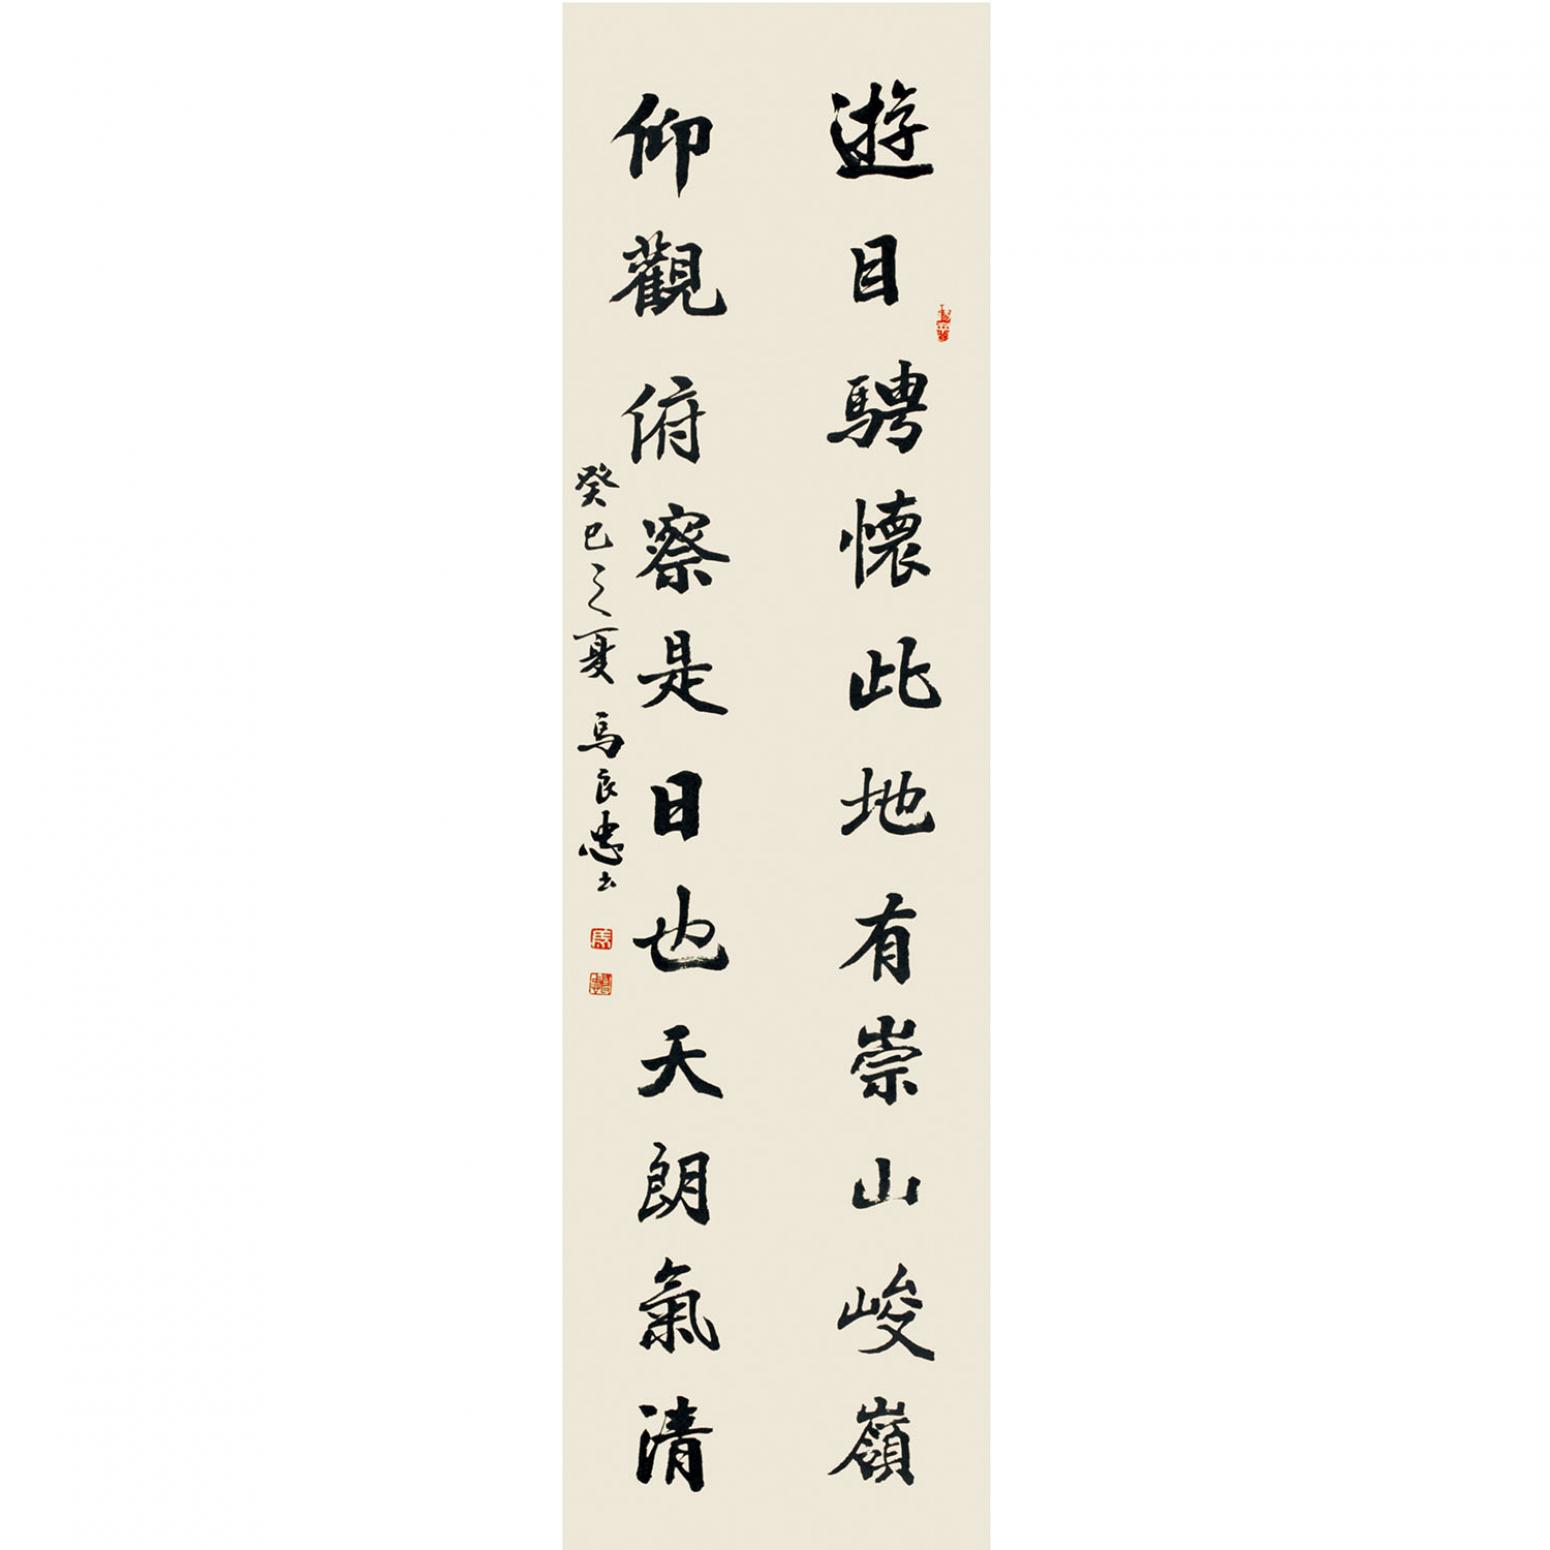 遊目騁懷此地有崇山峻嶺
仰觀俯察是日也天朗氣清
癸巳之夏 馬良忠書